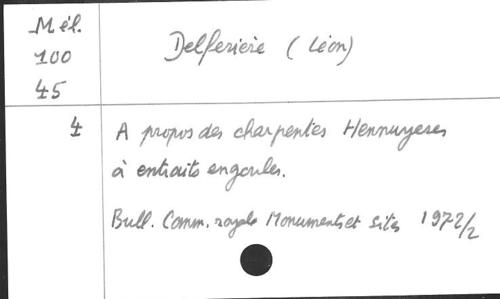 Mél.
100
45
Delferière (Léon)
4
A propos des charpentes Hennuyeres
à entraits engoulés.
Bull. Comm. royale Monuments et Sites 1972/2